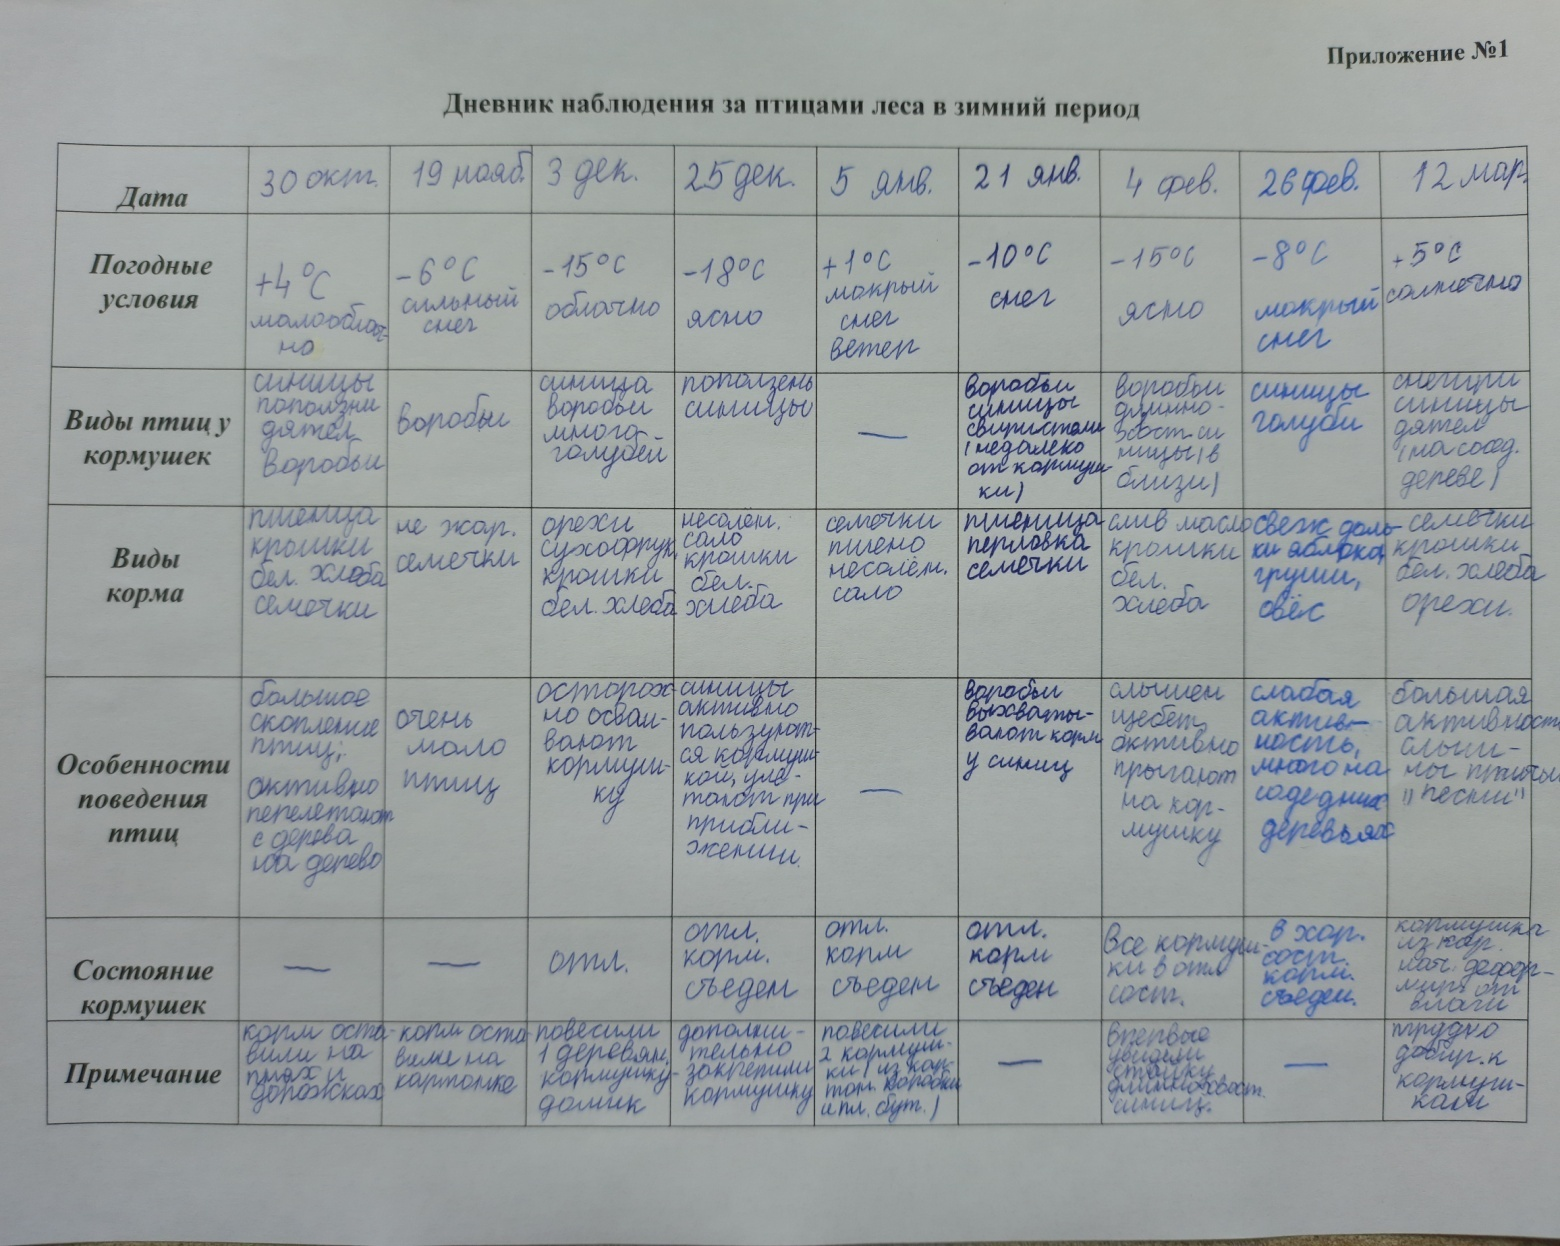 Приложение №1
Дневник наблюдения за птицами леса в зимний период
Дата
30 окт.
19 нояб.
3 дек.
25 дек.
5 янв.
21 янв.
4 фев.
26 фев.
12 мар.
Погодные
условия
+4°С
малооблач-
но
-6°С
сильный
снег
-15°С
облачно
-18°С
ясно
+1°С
мокрый
снег
ветер
-10°С
снег
-15°С
ясно
-8°С
мокрый
снег
+5°С
солнечно
Виды птиц у
кормушек
синицы
поползни
дятел
воробьи
воробьи
синица
воробьи
много
голубей
поползень
синицы
—
воробьи
синицы
свиристели
(недалеко
от кормуш-
ки)
воробьи
длинно-
хвост си
ницы (в
близи)
синицы
голуби
снегири
синицы
дятел
(на сосед.
дереве)
Виды
корма
пшеница
крошки
бел. хлеба
семечки
не жар.
семечки
орехи
сухофрук.
крошки
бел. хлеба
несолён.
сало
крошки
бел.
хлеба
семечки
пшено
несолён.
сало
пшеница
перловка
семечки
слив масло
крошки
бел.
хлеба
свеж доль-
ки яблока,
груши,
овёс
семечки
крошки
бел. хлеба
орехи.
Особенности
поведения
птиц
большое
скопление
птиц;
активно
перелетают
с дерева
на дерево
очень
мало
птиц
осторож-
но осваи-
вают
кормуш-
ку
синицы
активно
пользуют-
ся кормуш-
кой, уле-
тают при
прибли-
жении.
—
воробьи
выхваты-
вают корм
у синиц
слышен
щебет,
активно
прыгают
на кор-
мушку
слабая
актив-
ность,
много на
соседних
деревьях
большая
активность
слыш-
ны птичьи
"песни"
Состояние
кормушек
—
—
отл.
отл.
корм.
съеден
отл.
корм
съеден
отл.
корм
съеден
Все кормуш-
ки в отл
сост.
в хор.
сост.
корм.
съеден.
кормушка
из кар.
нач. дефор-
мир. от
влаги
Примечание
корм оста-
вили на
пнях и
дорожках
корм оста
вили на
картонке
повесили
1 деревян.
кормушку-
домик
дополни-
тельно
закрепили
кормушку
повесили
2 кормуш-
ки (из кар-
тон. коробки
и пл. бут.)
—
впервые
увидели
стайку
длиннохвост.
синиц.
—
трудно
добир. к
кормуш-
кам